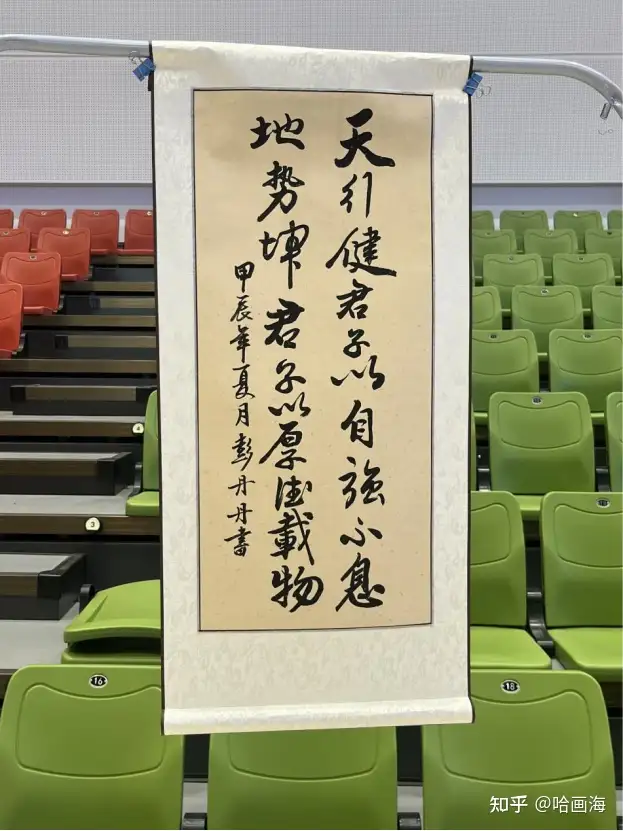 天行健君子以自強不息
地势坤君子以厚德載物
甲辰年夏月彭丹丹書
3
4
16
18
知乎 @哈画海